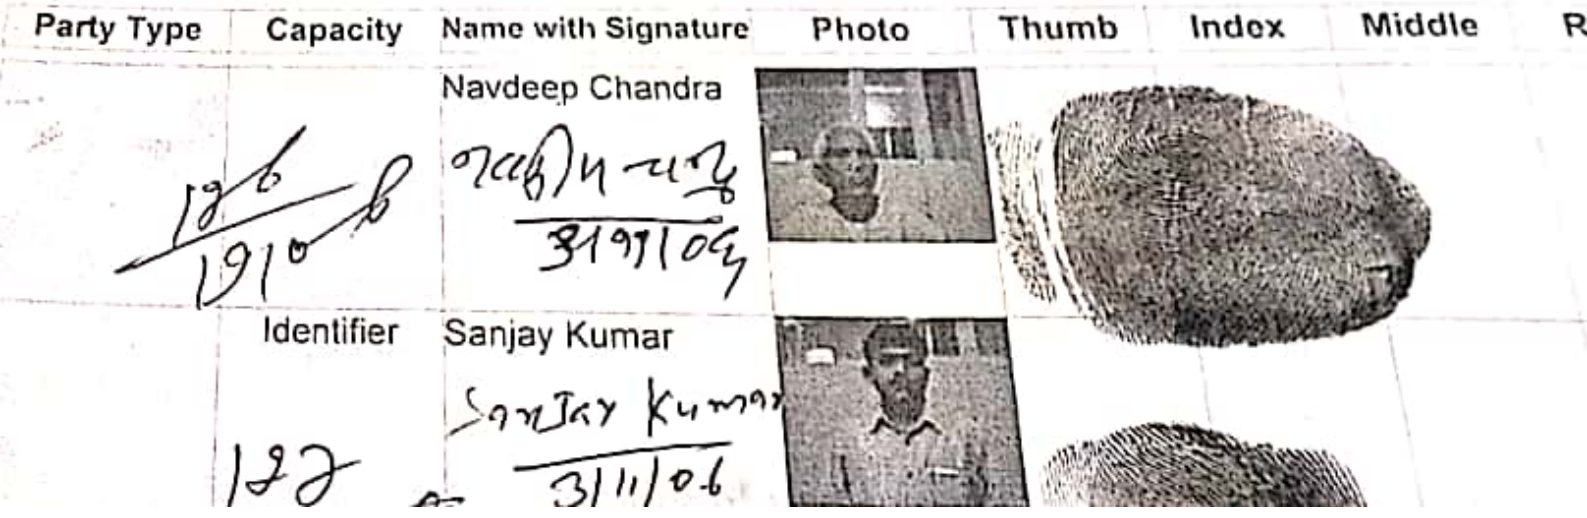 Party Type Capacity Name with Signature Photo Thumb Index Middle R
Navdeep Chandra
नवदीप चन्द्र
३/११/०६
Identifier Sanjay Kumar
Sanjay Kumar
3/11/06